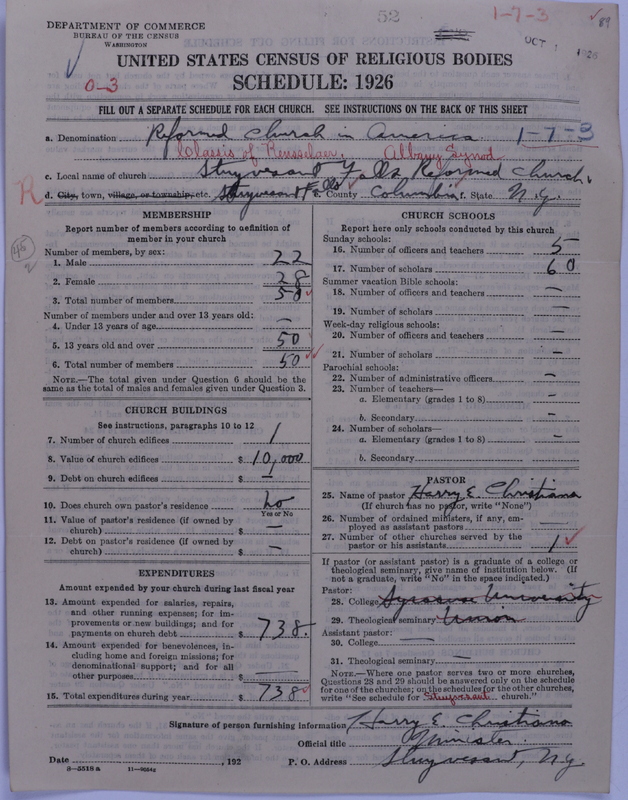 52
1-7-3
89
DEPARTMENT OF COMMERCE
BUREAU OF THE CENSUS
WASHINGTON
OCT 1926
UNITED STATES CENSUS OF RELIGIOUS BODIES
SCHEDULE: 1926
0-3
FILL OUT A SEPARATE SCHEDULE FOR EACH CHURCH. SEE INSTRUCTIONS ON THE BACK OF THIS SHEET
a. Denomination Reformed Church in America 1-7-3
Classis of Rensselaer. Albany Synod
c. Local name of church Stuyvesant Falls Reformed Church.
R d. City, town, village, or township, etc. Stuyvesant Falls e. County Columbia f. State N.Y.
MEMBERSHIP
Report number of members according to definition of
member in your church
46
2
Number of members, by sex:
1. Male 22
2. Female 28
3. Total number of members 50
Number of members under and over 13 years old:
4. Under 13 years of age —
5. 13 years old and over 50
6. Total number of members 50
NOTE.—The total given under Question 6 should be the
same as the total of males and females given under Question 3.
CHURCH BUILDINGS
See instructions, paragraphs 10 to 12
7. Number of church edifices 1
8. Value of church edifices $ 10,000
9. Debt on church edifices $ —
10. Does church own pastor's residence no
Yes or No
11. Value of pastor's residence (if owned by
church) $ —
12. Debt on pastor's residence (if owned by
church) $ —
EXPENDITURES
Amount expended by your church during last fiscal year
13. Amount expended for salaries, repairs,
and other running expenses; for im-
provements or new buildings; and for
payments on church debt $ 738.
14. Amount expended for benevolences, in-
cluding home and foreign missions; for
denominational support; and for all
other purposes $ —
15. Total expenditures during year $ 738
CHURCH SCHOOLS
Report here only schools conducted by this church
Sunday schools:
16. Number of officers and teachers 5
17. Number of scholars 60
Summer vacation Bible schools:
18. Number of officers and teachers —
19. Number of scholars —
Week-day religious schools:
20. Number of officers and teachers —
21. Number of scholars —
Parochial schools:
22. Number of administrative officers —
23. Number of teachers—
a. Elementary (grades 1 to 8) —
b. Secondary —
24. Number of scholars—
a. Elementary (grades 1 to 8) —
b. Secondary
PASTOR
25. Name of pastor Harry E. Christiana
(If church has no pastor, write "None")
26. Number of ordained ministers, if any, em-
ployed as assistant pastors —
27. Number of other churches served by the
pastor or his assistants 1
If pastor (or assistant pastor) is a graduate of a college or
theological seminary, give name of institution below. (If
not a graduate, write "No" in the space indicated.)
Pastor:
28. College Syracuse University
29. Theological seminary Union
Assistant pastor:
30. College —
31. Theological seminary —
NOTE.—Where one pastor serves two or more churches,
Questions 28 and 29 should be answered only on the schedule
for one of the churches; on the schedules for the other churches,
write "See schedule for Stuyvesant church."
Signature of person furnishing information Harry E. Christiana
Official title Minister.
Date , 192 P. O. Address Stuyvesant, N.Y.
8-5518a